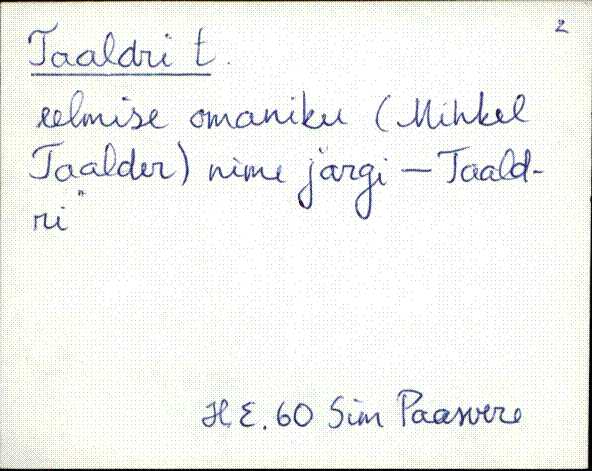 2
Taaldri t.
eelmise omaniku (Mihkel
Taalder) nime järgi — Taald-
ri"
H. E. 60 Sim Paasvere